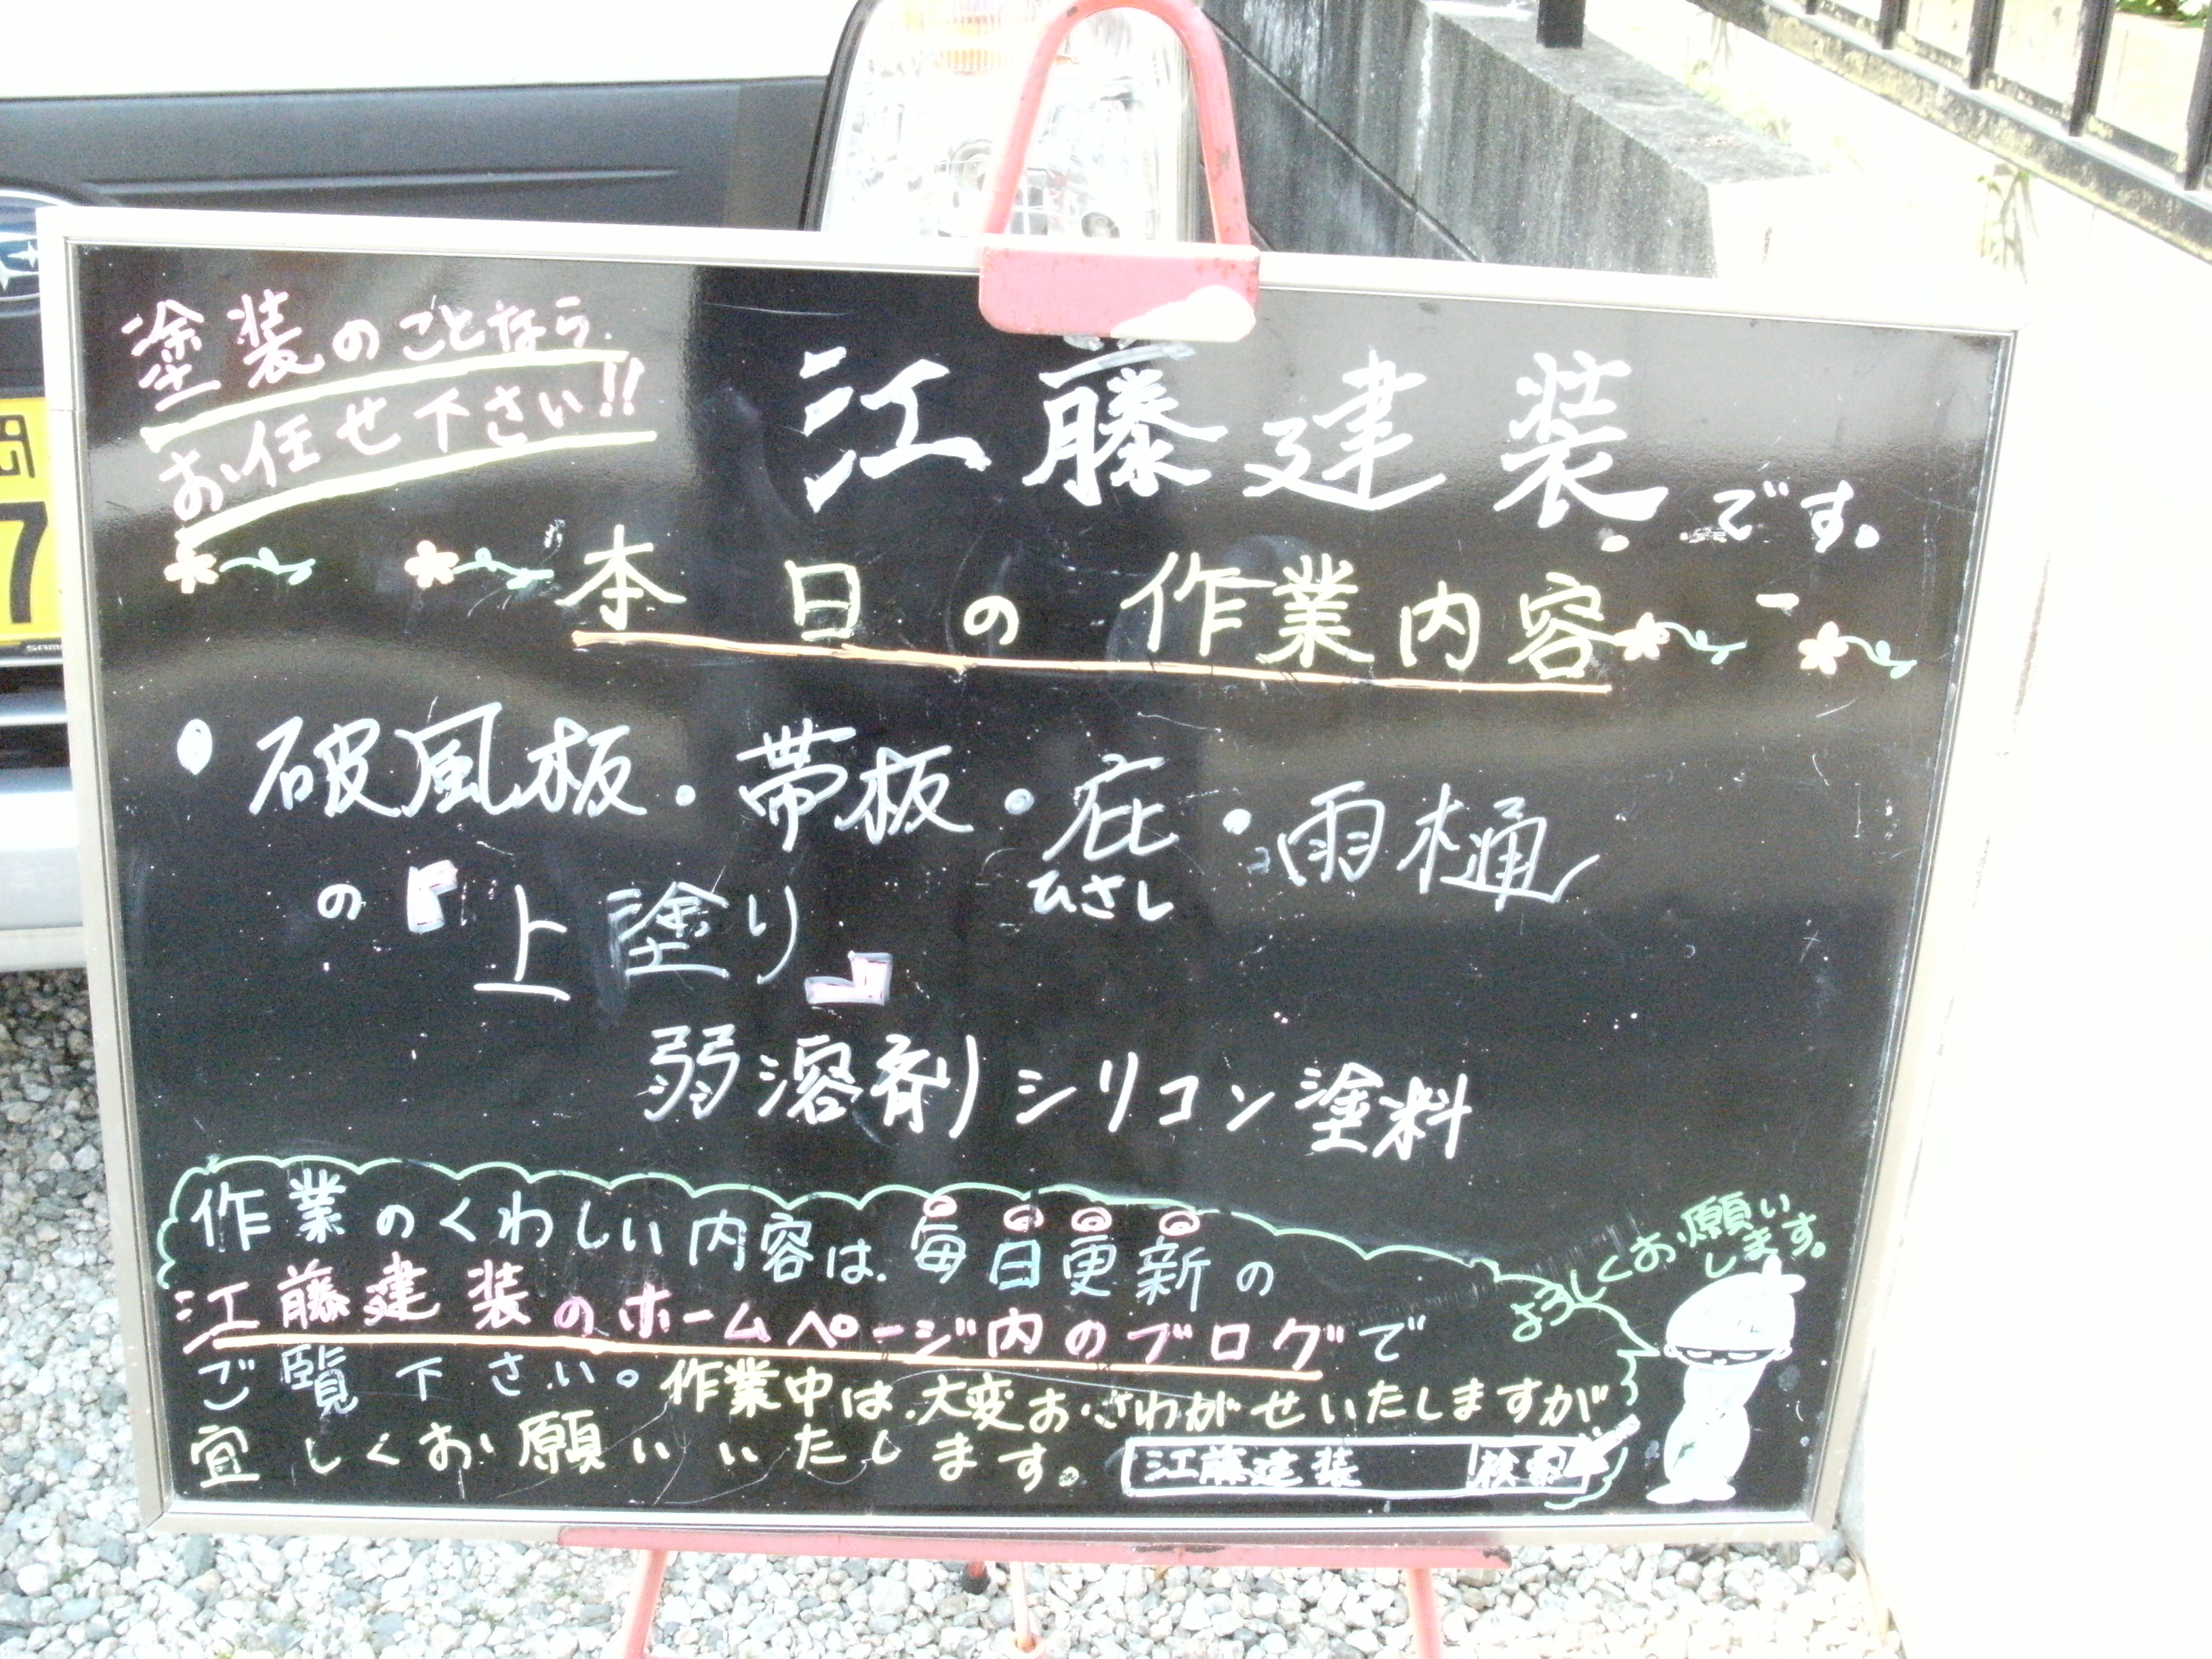 塗装のことなら
お任せ下さい!!
江藤建装です。
本日の作業内容
・破風板・帯板・庇・雨樋
ひさし
の『上塗り』
弱溶剤シリコン塗料
作業のくわしい内容は、毎日更新の
江藤建装のホームページ内のブログで
ご覧下さい。作業中は、大変おさわがせいたしますが
宜しくお願いいたします。
江藤建装 検索
よろしくお願い
します。
7